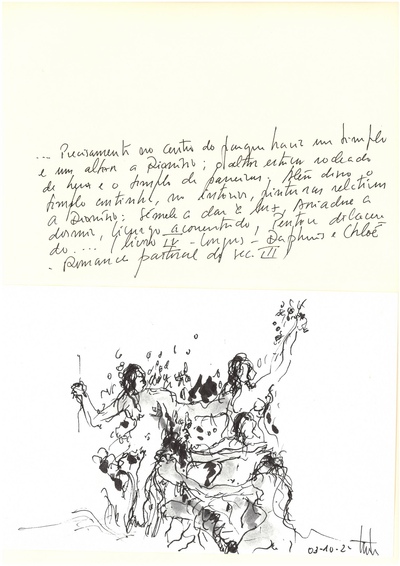 ... Precisamente no centro do parque havia um templo
e um altar a Dioniso; o altar estava rodeado
de hera e o templo de parreiras; Além disso o
templo continha, no interior, pinturas relativas
a Dioniso: Sémele a dar à luz, Ariadne a
dormir, Licurgo acorrentado, Penteu dilacera
do.... (livro IV - Longus - Daphnis e Chloé
- Romance pastoral do sec. III
03-10-2